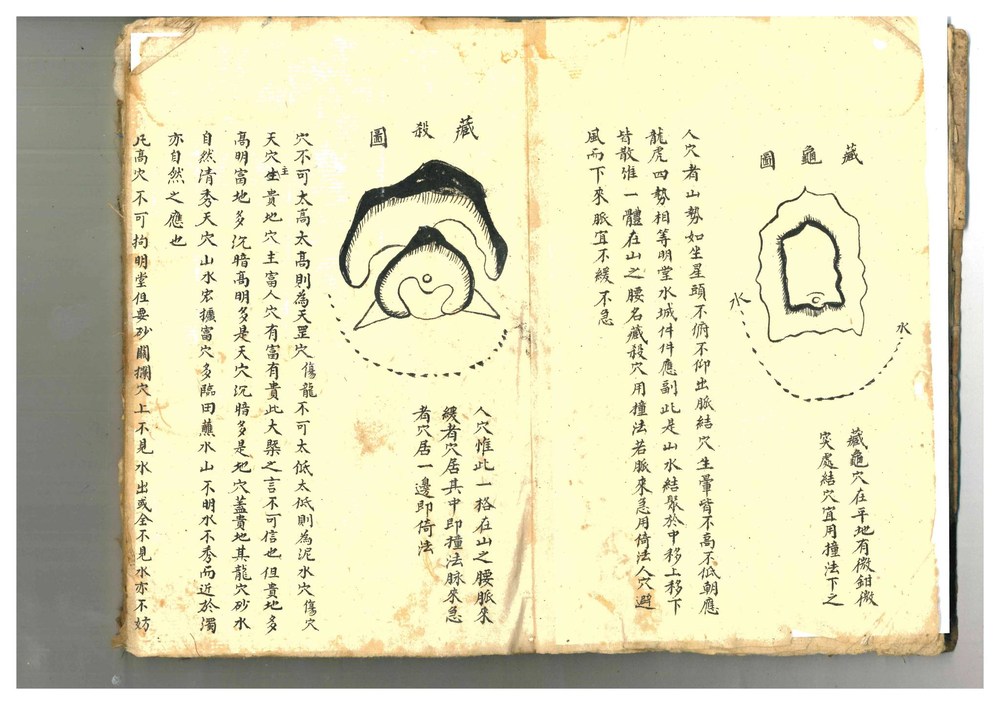 藏龜圖
水
水
藏龜穴在平地有微鉗微
突處結穴宜用撞法下之
人穴者山勢如坐星頭不俯不仰出脈結穴生暈皆不高不低朝應
龍虎四勢相等明堂水城件件應副此是山水結聚於中移上移下
皆散惟一體在山之腰名藏殺穴用撞法若脈來急用倚法人穴避
風而下來脈宜不緩不急
藏殺圖
人穴惟此一格在山之腰脈來
緩者穴居其中即撞法脉來急
者穴居一邊即倚法
穴不可太高太高則為天罡穴傷龍不可太低太低則為泥水穴傷穴
天穴主貴地穴主富人穴有富有貴此大槩之言不可信也但貴地多
高明富地多沉暗高明多是天穴沉暗多是地穴蓋貴地其龍穴砂水
自然清秀天穴山水宏擴富穴多臨田蘸水山不明水不秀而近於濁
亦自然之應也
凡高穴不可拘明堂但要砂關攔穴上不見水出或全不見水亦不妨